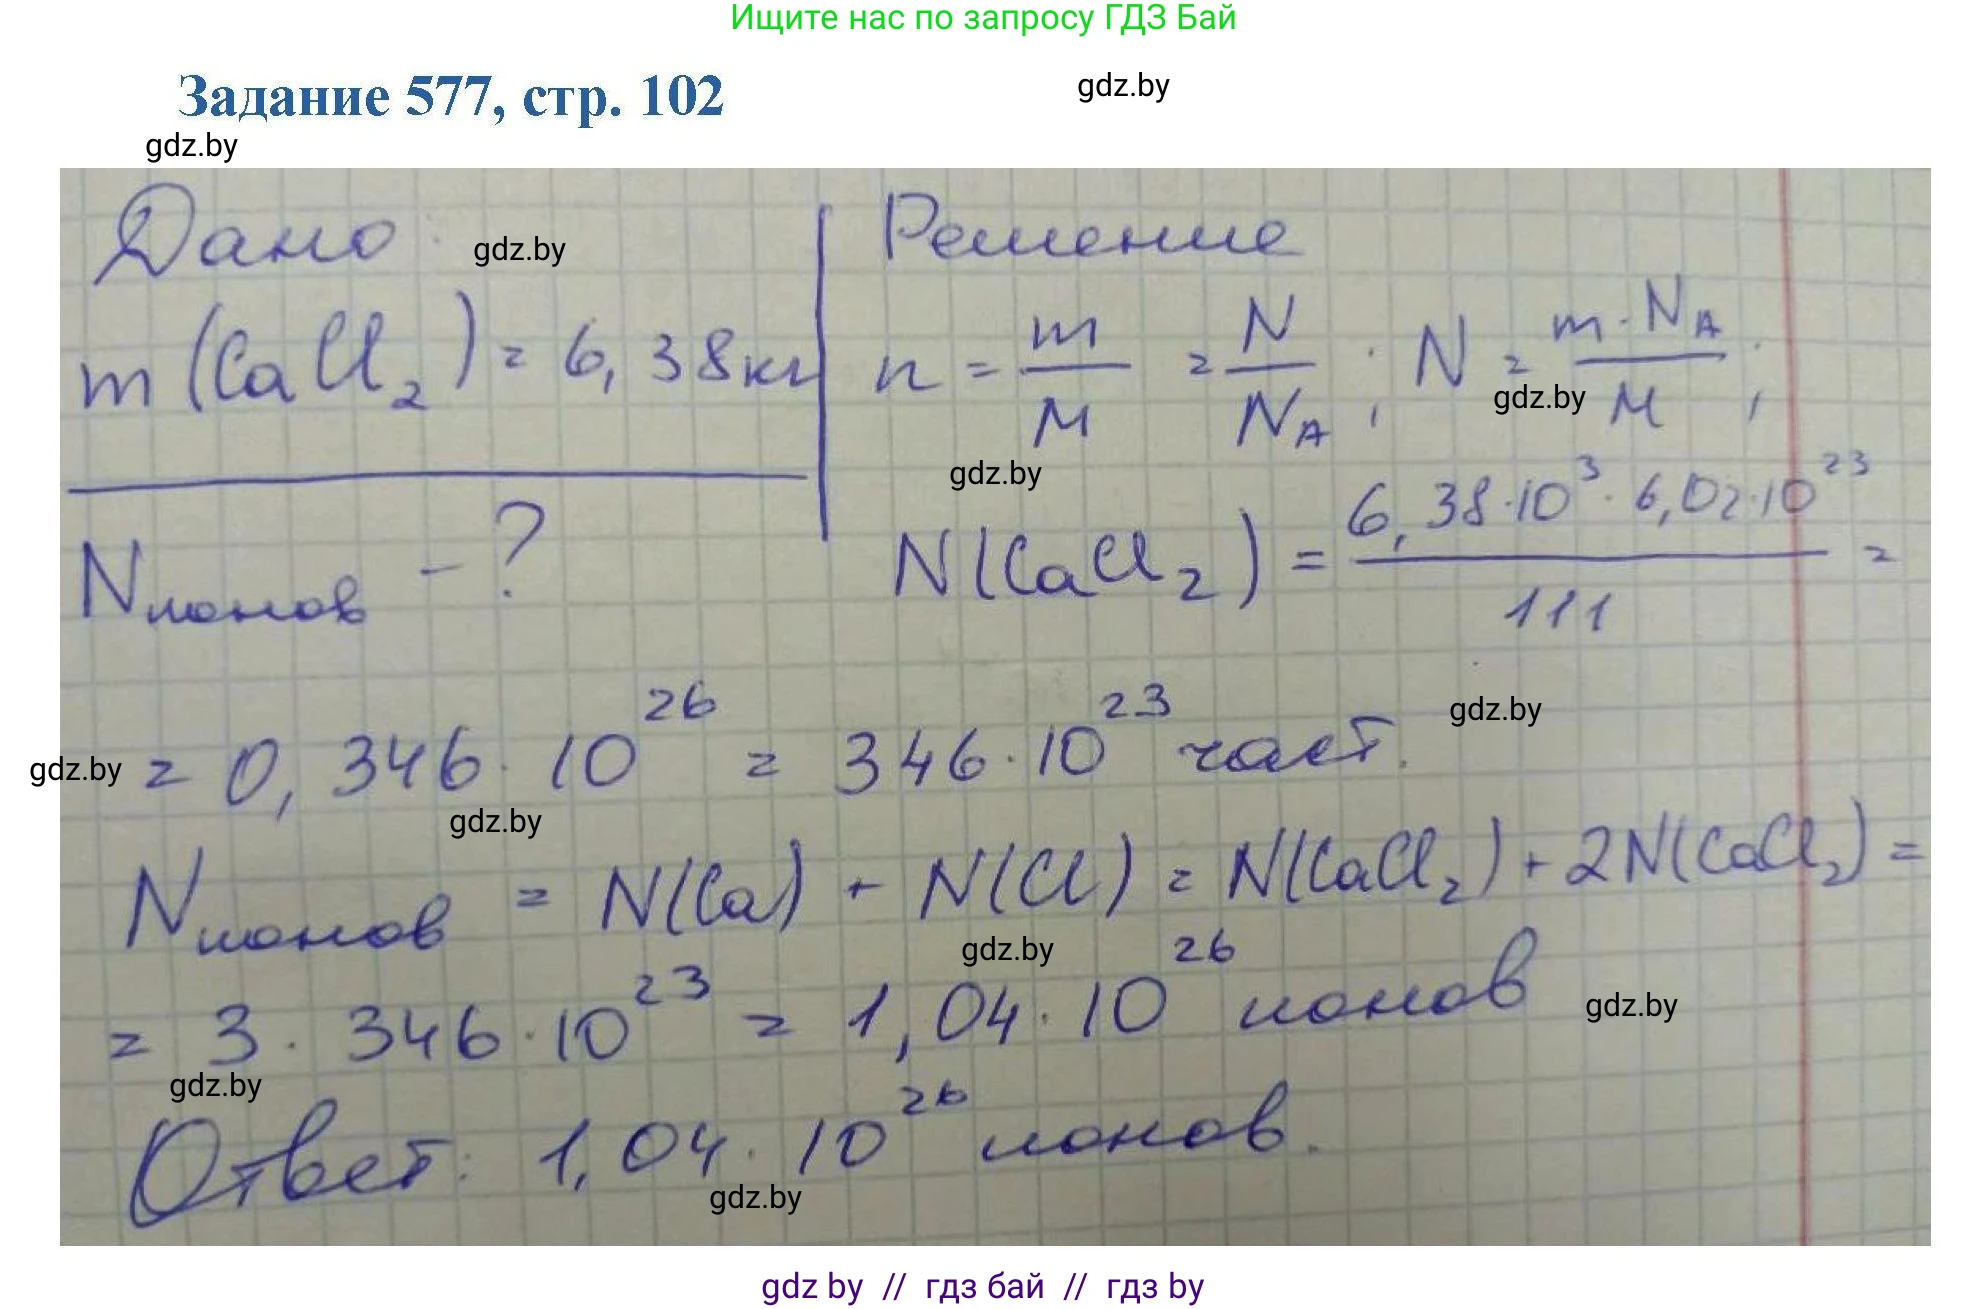 Ищите нас по запросу ГДЗ Бай
Задание 577, стр. 102
gdz.by
gdz.by
Дано
gdz.by
Решение
m(CaCl₂) = 6,38кг
n = m/M = N/N_A ; N = m·N_A/M ;
gdz.by
gdz.by
Nионов - ?
N(CaCl₂) = 6,38·10³·6,02·10²³/111 =
gdz.by
gdz.by
= 0,346·10²⁶ = 346·10²³ част.
gdz.by
Nионов = N(Ca) + N(Cl) = N(CaCl₂) + 2N(CaCl₂) =
gdz.by
= 3·346·10²³ = 1,04·10²⁶ ионов
gdz.by
gdz.by
Ответ: 1,04·10²⁶ ионов.
gdz.by
gdz by // гдз бай // гдз by